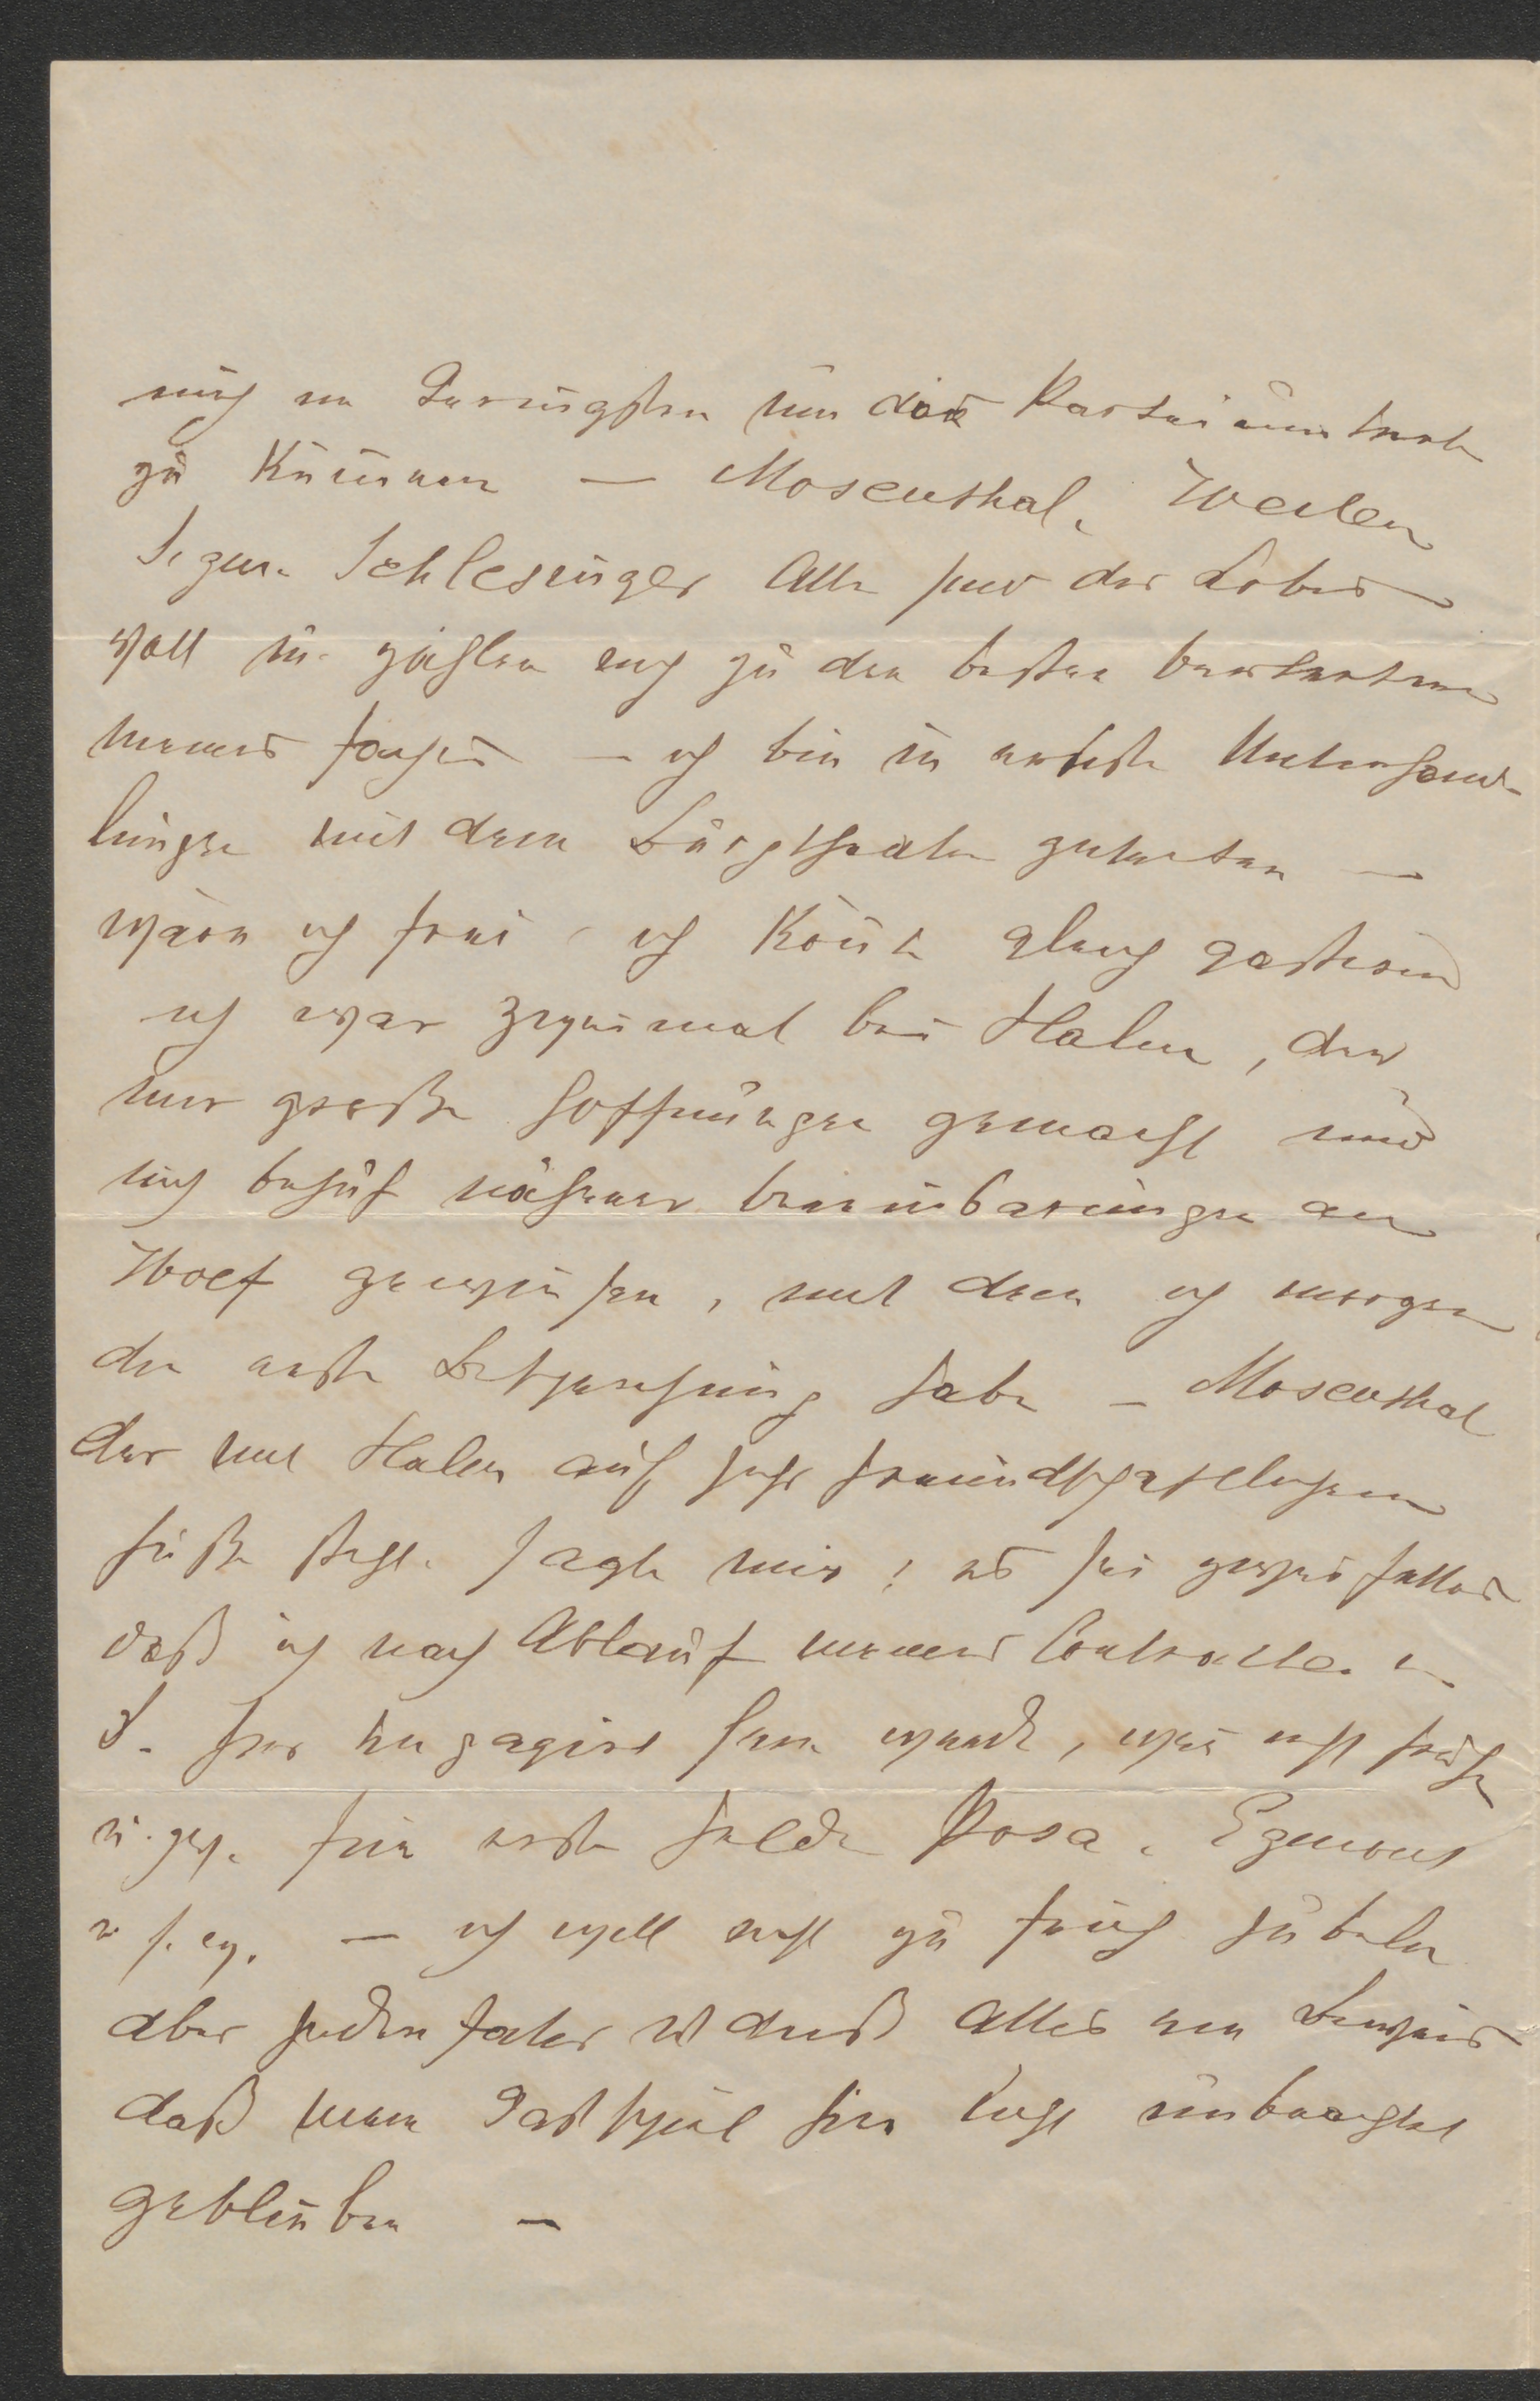 mich im Geringsten um das Parteiinteresse
zu kümmern — Mosenthal, Weilen
Sigm. Schlesinger Alle sind des Lobes
voll u. zählen mich zu den besten Vertretern
meines Faches — ich bin in ernste Unterhand-
lungen mit dem Burgtheater getreten —
wäre ich frei, ich könnte gleich gastiren
ich war zweimal bei Halm, der
mir große Hoffnungen gemacht und
mich behufs näherer Vereinbarungen an
Wolf gewiesen, mit dem ich morgen
die erste Besprechung habe — Mosenthal
der mit Halm auf sehr freundschaftlichem
Fuße steht, sagte mir: es sei zweifellos
daß ich nach Ablauf meines Contractes in
hier engagirt sein werde, wenn nicht früher
u. zw. für erste Helden Posa, Egmont
u. s. w. — ich will nicht zu früh jubeln
aber jedenfalls ist dieß Alles ein Beweis
daß mein Gastspiel hier nicht unbeachtet
geblieben —